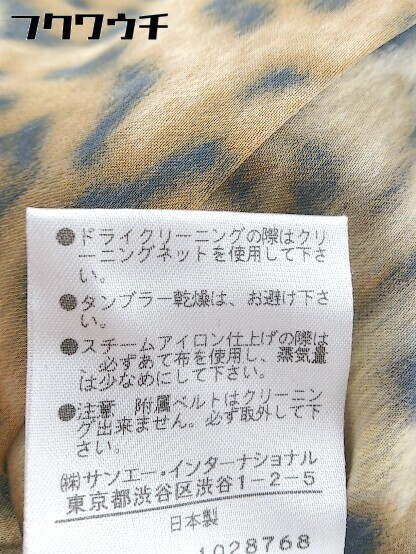 フクワウチ
●ドライクリーニングの際はクリ
ーニングネットを使用して下さ
い。
●タンブラー乾燥は、お避け下さ
い。
●スチームアイロン仕上げの際は
、必ずあて布を使用し、蒸気量
は少なめにして下さい。
●注意 附属ベルトはクリーニン
グ出来ません。必ず取外して下
さい。
㈱サンエー・インターナショナル
東京都渋谷区渋谷1-2-5
日本製
1028768